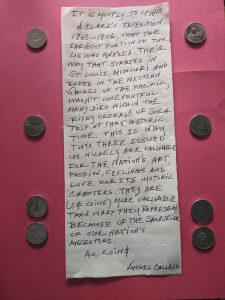 IT IS MOSTLY TO LEWIS
& CLARK'S EXPEDITION
1803-1806, THAT THE
LARGEST PORTION OF THE
US WAS ANEXED. THEIR
WAY THAT STARTED IN
ST LOUIS, MISSOURI AND
ENDED IN THE WESTERN
SHORES OF THE PACIFIC,
WASN'T UNEVENTFUL.
MANY DIED WITHIN THE
RISKY ORDEALS OF SUCH
TRIP AT THAT HISTORIC
TIME. THIS IS WHY
THIS THREE ISSUED
US NICKELS ARE VALUABLE
FOR THE NATION'S ART,
PASSION, FEELINGS AND
LOVE FOR ITS HISTORIC
CHAPTERS. THEY ARE
(5¢ COINS) MORE VALUABLE
THAN WHAT THEY REPRESENT
BECAUSE OF THE SACRIFICE
OF OUR NATION'S
ANCESTORS.
AC COINS
ANGEL COLLAZO